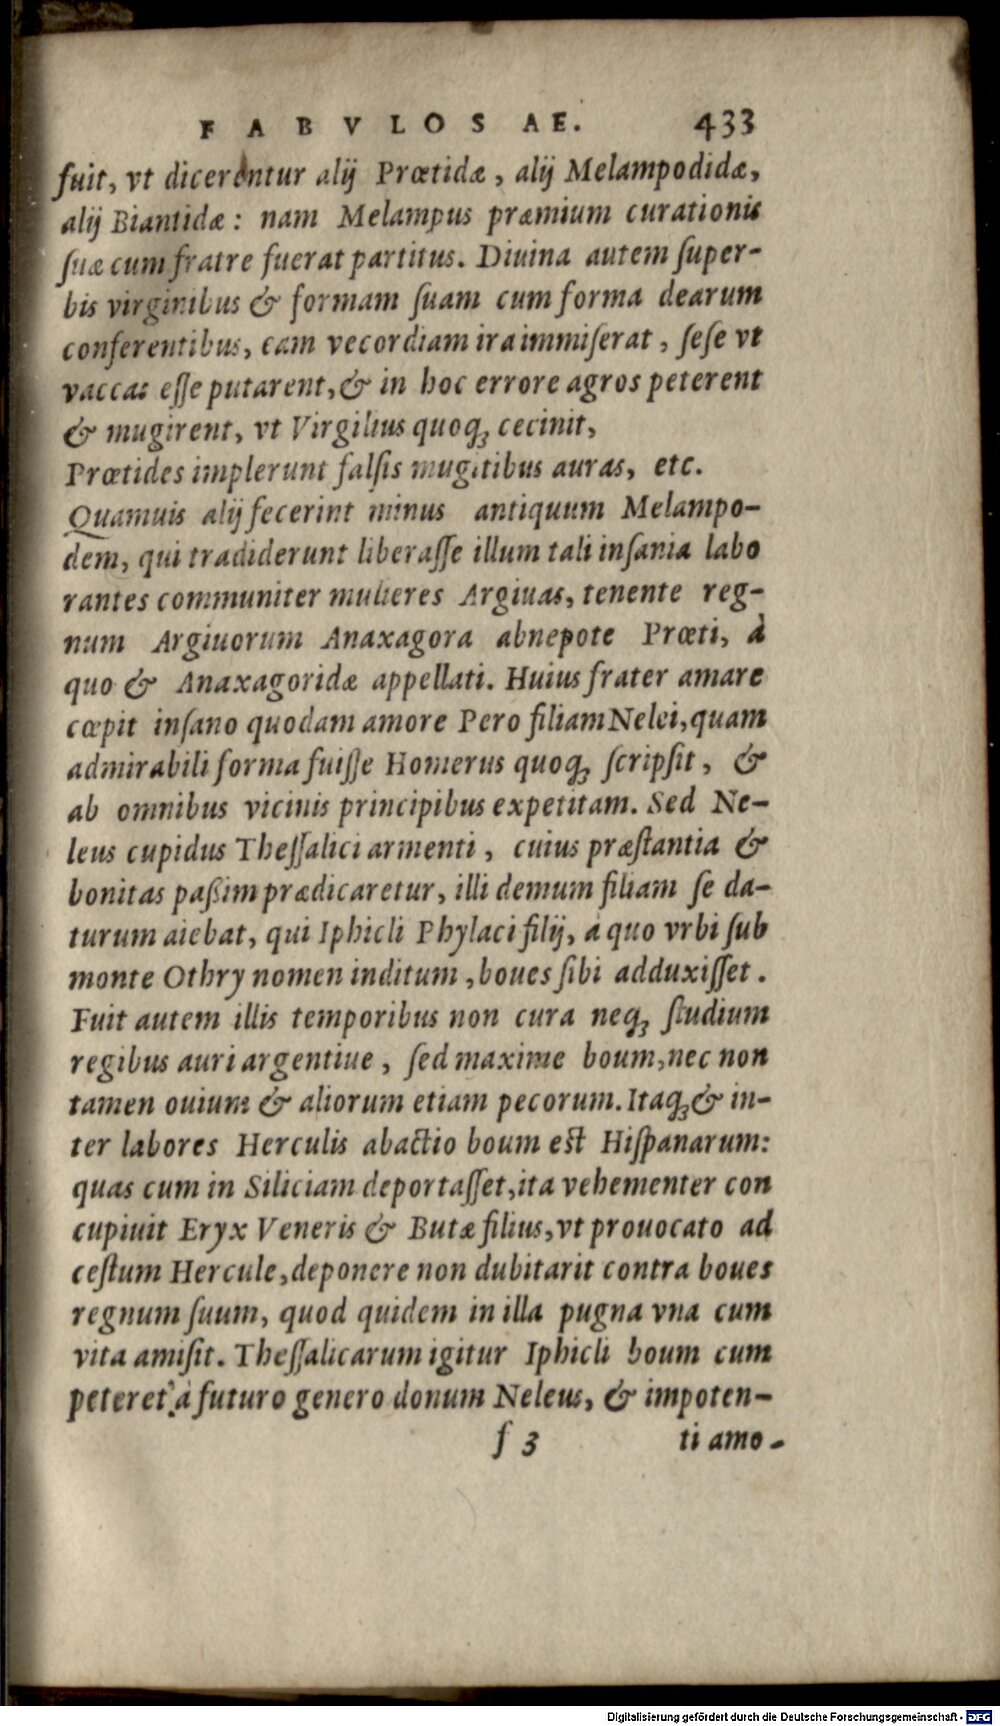 FABVLOSAE. 433
fuit, vt dicerentur alij Prœtidæ, alij Melampodidæ,
alij Biantidæ: nam Melampus præmium curationis
ſuæ cum fratre fuerat partitus. Diuina autem ſuper-
bis virginibus & formam ſuam cum forma dearum
conferentibus, eam vecordiam ira immiſerat, ſeſe vt
vaccas eſſe putarent, & in hoc errore agros peterent
& mugirent, vt Virgilius quoq; cecinit,
Prœtides implerunt falſis mugitibus auras, etc.
Quamuis alij fecerint minus antiquum Melampo-
dem, qui tradiderunt liberaſſe illum tali inſania labo
rantes communiter mulieres Argiuas, tenente reg-
num Argiuorum Anaxagora abnepote Prœti, à
quo & Anaxagoridæ appellati. Huius frater amare
cœpit inſano quodam amore Pero filiam Nelei, quam
admirabili forma fuiſſe Homerus quoq; ſcripſit, &
ab omnibus vicinis principibus expetitam. Sed Ne-
leus cupidus Theſſalici armenti, cuius præſtantia &
bonitas paßim prædicaretur, illi demum filiam ſe da-
turum aiebat, qui Iphicli Phylaci filij, à quo vrbi ſub
monte Othry nomen inditum, boues ſibi adduxiſſet.
Fuit autem illis temporibus non cura neq; ſtudium
regibus auri argentiue, ſed maxime boum, nec non
tamen ouium & aliorum etiam pecorum. Itaq; & in-
ter labores Herculis abactio boum est Hiſpanarum:
quas cum in Siliciam deportaſſet, ita vehementer con
cupiuit Eryx Veneris & Butæ filius, vt prouocato ad
ceſtum Hercule, deponere non dubitarit contra boues
regnum ſuum, quod quidem in illa pugna vna cum
vita amiſit. Theſſalicarum igitur Iphicli boum cum
peteret à futuro genero donum Neleus, & impoten-
f 3 ti amo-
Digitalisierung gefördert durch die Deutsche Forschungsgemeinschaft - DFG